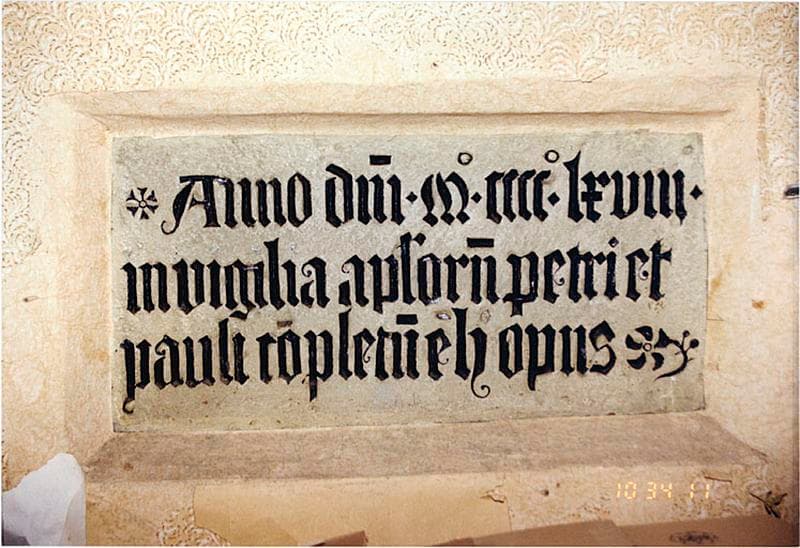 Anno dm̄i·M°·cccc°·lxviii·
in vigilia apl'orū petri et
pauli cōpletū ē h' opus
10 34 11